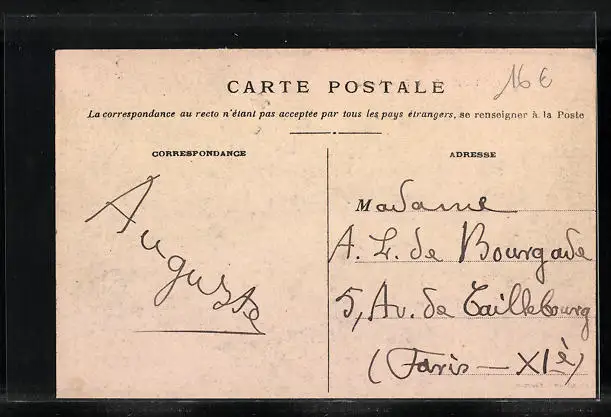 CARTE POSTALE
16 €
La correspondance au recto n'étant pas acceptée par tous les pays étrangers, se renseigner à la Poste
CORRESPONDANCE
Auguste
ADRESSE
Madame
A. L. de Bourgade
5, Av. de Taillebourg
(Paris — XIè)